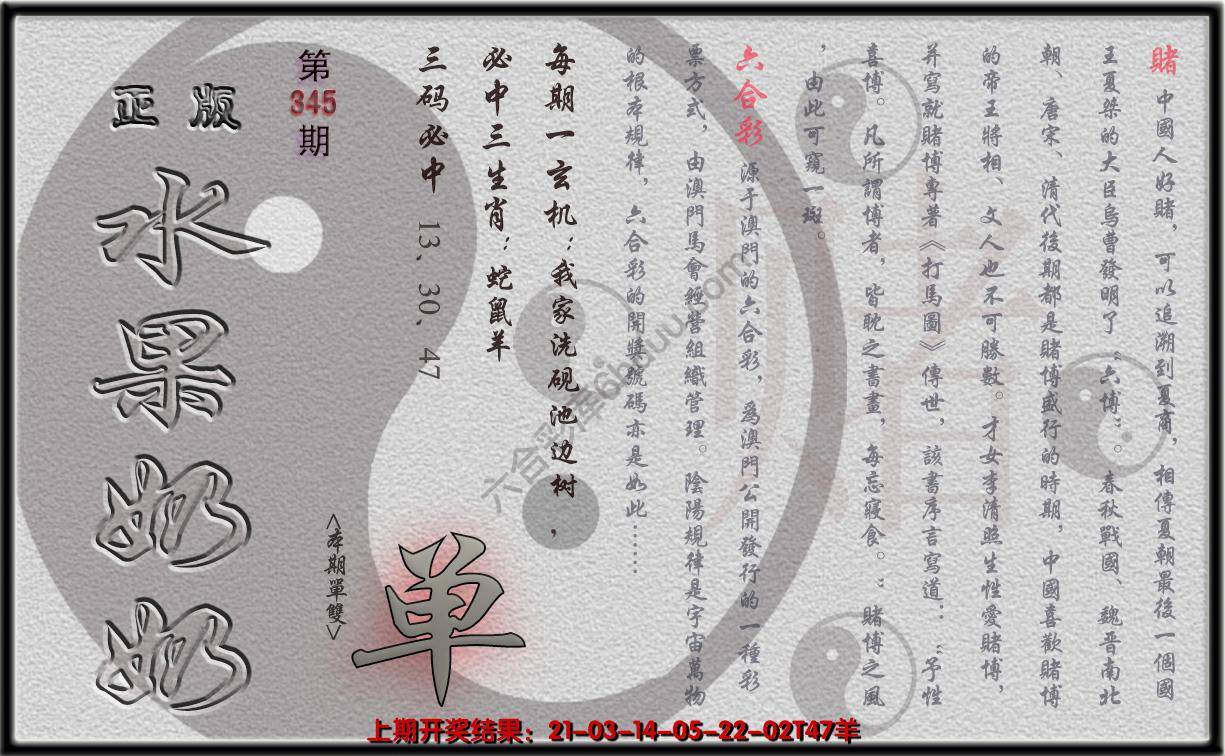 賭 中國人好賭，可以追溯到夏商，相傳夏朝最後一個國
王夏桀的大臣烏曹發明了“六博”。春秋戰國、魏晋南北
朝、唐宋、清代後期都是賭博盛行的時期，中國喜歡賭博
的帝王將相、文人也不可勝數。才女李清照生性愛賭博，
并寫就賭博專著《打馬圖》傳世，該書序言寫道：“予性
喜博。凡所謂博者，皆耽之書畫，每忘寢食。”賭博之風
，由此可窺一斑。
六合彩 源于澳門的六合彩，爲澳門公開發行的一種彩
票方式，由澳門馬會經營組織管理。陰陽規律是宇宙萬物
的根本規律，六合彩的開獎號碼亦是如此……
每期一玄机：我家洗砚池边树，
必中三生肖：蛇鼠羊
三码必中 13、30、47
第
345
期
正版
水果奶奶
<本期單雙>
单
上期开奖结果：21-03-14-05-22-02T47羊